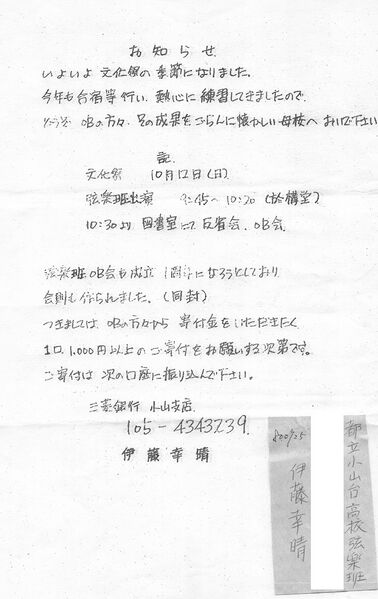 お知らせ
いよいよ文化祭の季節になりました。
今年も合宿等行い、熱心に練習してきましたので
どうぞ OBの方々、その成果をごらんに懐かしい母校へおいで下さい
記
文化祭 10月12日(日)
弦楽班出演 9:45〜10:20 (於講堂)
10:30より 図書室にて反省会、OB会
弦楽班OB会も成立1周年になろうとしており
会則も作られました。(同封)
つきましては OBの方々から 寄付金をいただきたく
1口 1,000円以上のご寄付をお願いする次第です。
ご寄付は 次の口座に振り込んで下さい。
三菱銀行 小山支店
105-4343239
伊藤幸晴
都立小山台高校弦楽班
伊藤幸晴